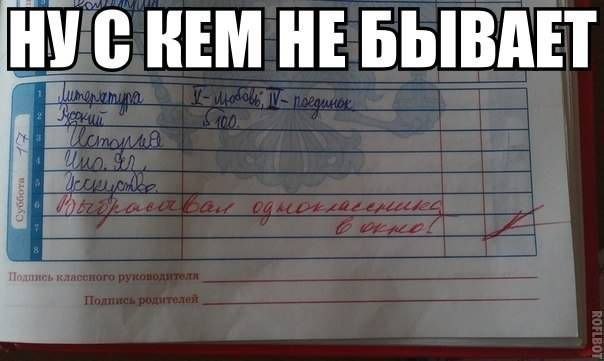 НУ С КЕМ НЕ БЫВАЕТ
1 Литература V - любовь; IV - поединок
2 Русский Б 100
3 История
4 Ино. Яз.
5 Исскуство.
6 Выбрасывал одноклассника
7 в окно!
8
Суббота 17
Подпись классного руководителя
Подпись родителей
ROFLBOT